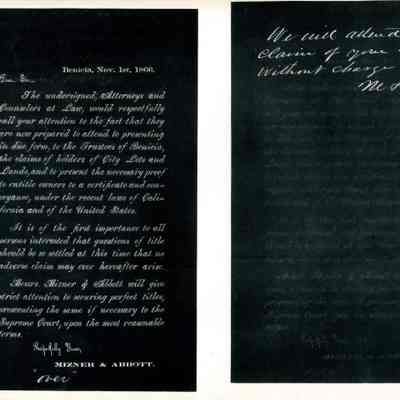 Benicia, Nov. 1st, 1866.
Dear Sir:
The undersigned, Attorneys and
Counselors at Law, would respectfully
call your attention to the fact that they
are now prepared to attend to presenting
in due form, to the Trustees of Benicia,
the claims of holders of City Lots and
Lands, and to present the necessary proof
to entitle owners to a certificate and con-
veyance, under the recent laws of Cali-
fornia and of the United States.
It is of the first importance to all
persons interested that questions of title
should be settled at this time that no
adverse claim may ever hereafter arise.
Messrs. Mizner & Abbott will give
strict attention to securing perfect titles,
presenting the same if necessary to the
Supreme Court, upon the most reasonable
terms.
Respectfully Yours,
MIZNER & ABBOTT.
"over"
We will attend
claim of your
without charge
M